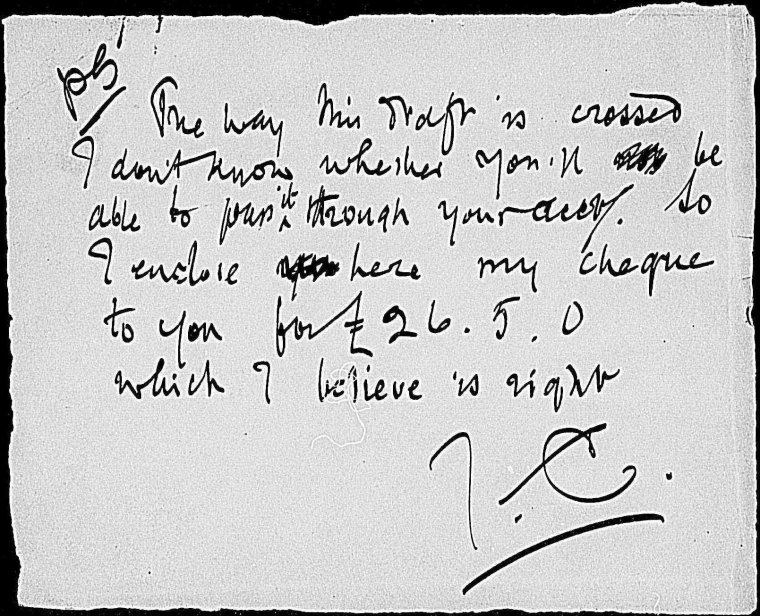 PS
The way this draft is crossed
I don't know whether you'll be
able to pass it through your acct. So
I enclose here my cheque
to you for £26.5.0
which I believe is right
J.C.